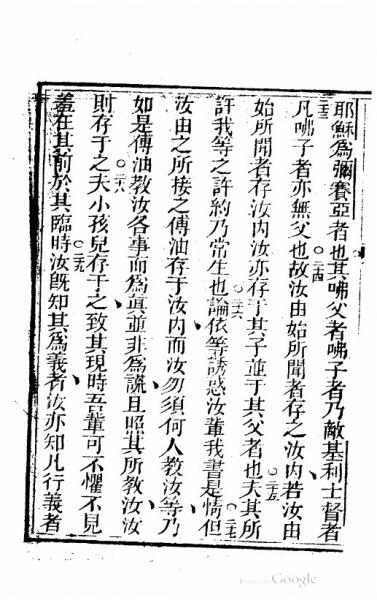 耶穌爲彌賽亞者也其咈父者咈子者乃敵基利士督者
二三凡咈子者亦無父也二四故汝由始所聞者存之汝內若汝由
始所聞者存汝內汝亦存于其子並于其父者也二五夫其所
許我等之許約乃常生也二六論依等誘惑汝輩我書是情二七但
汝由之所接之傅油存于汝內而汝勿須何人教汝等乃
如是傅油教汝各事而爲眞並非爲謊且照其所教汝汝
則存于之二八夫小孩兒存于之致其現時吾輩可不懼不見
羞在其前於其臨時二九汝既知其爲義者汝亦知凡行義者
Google